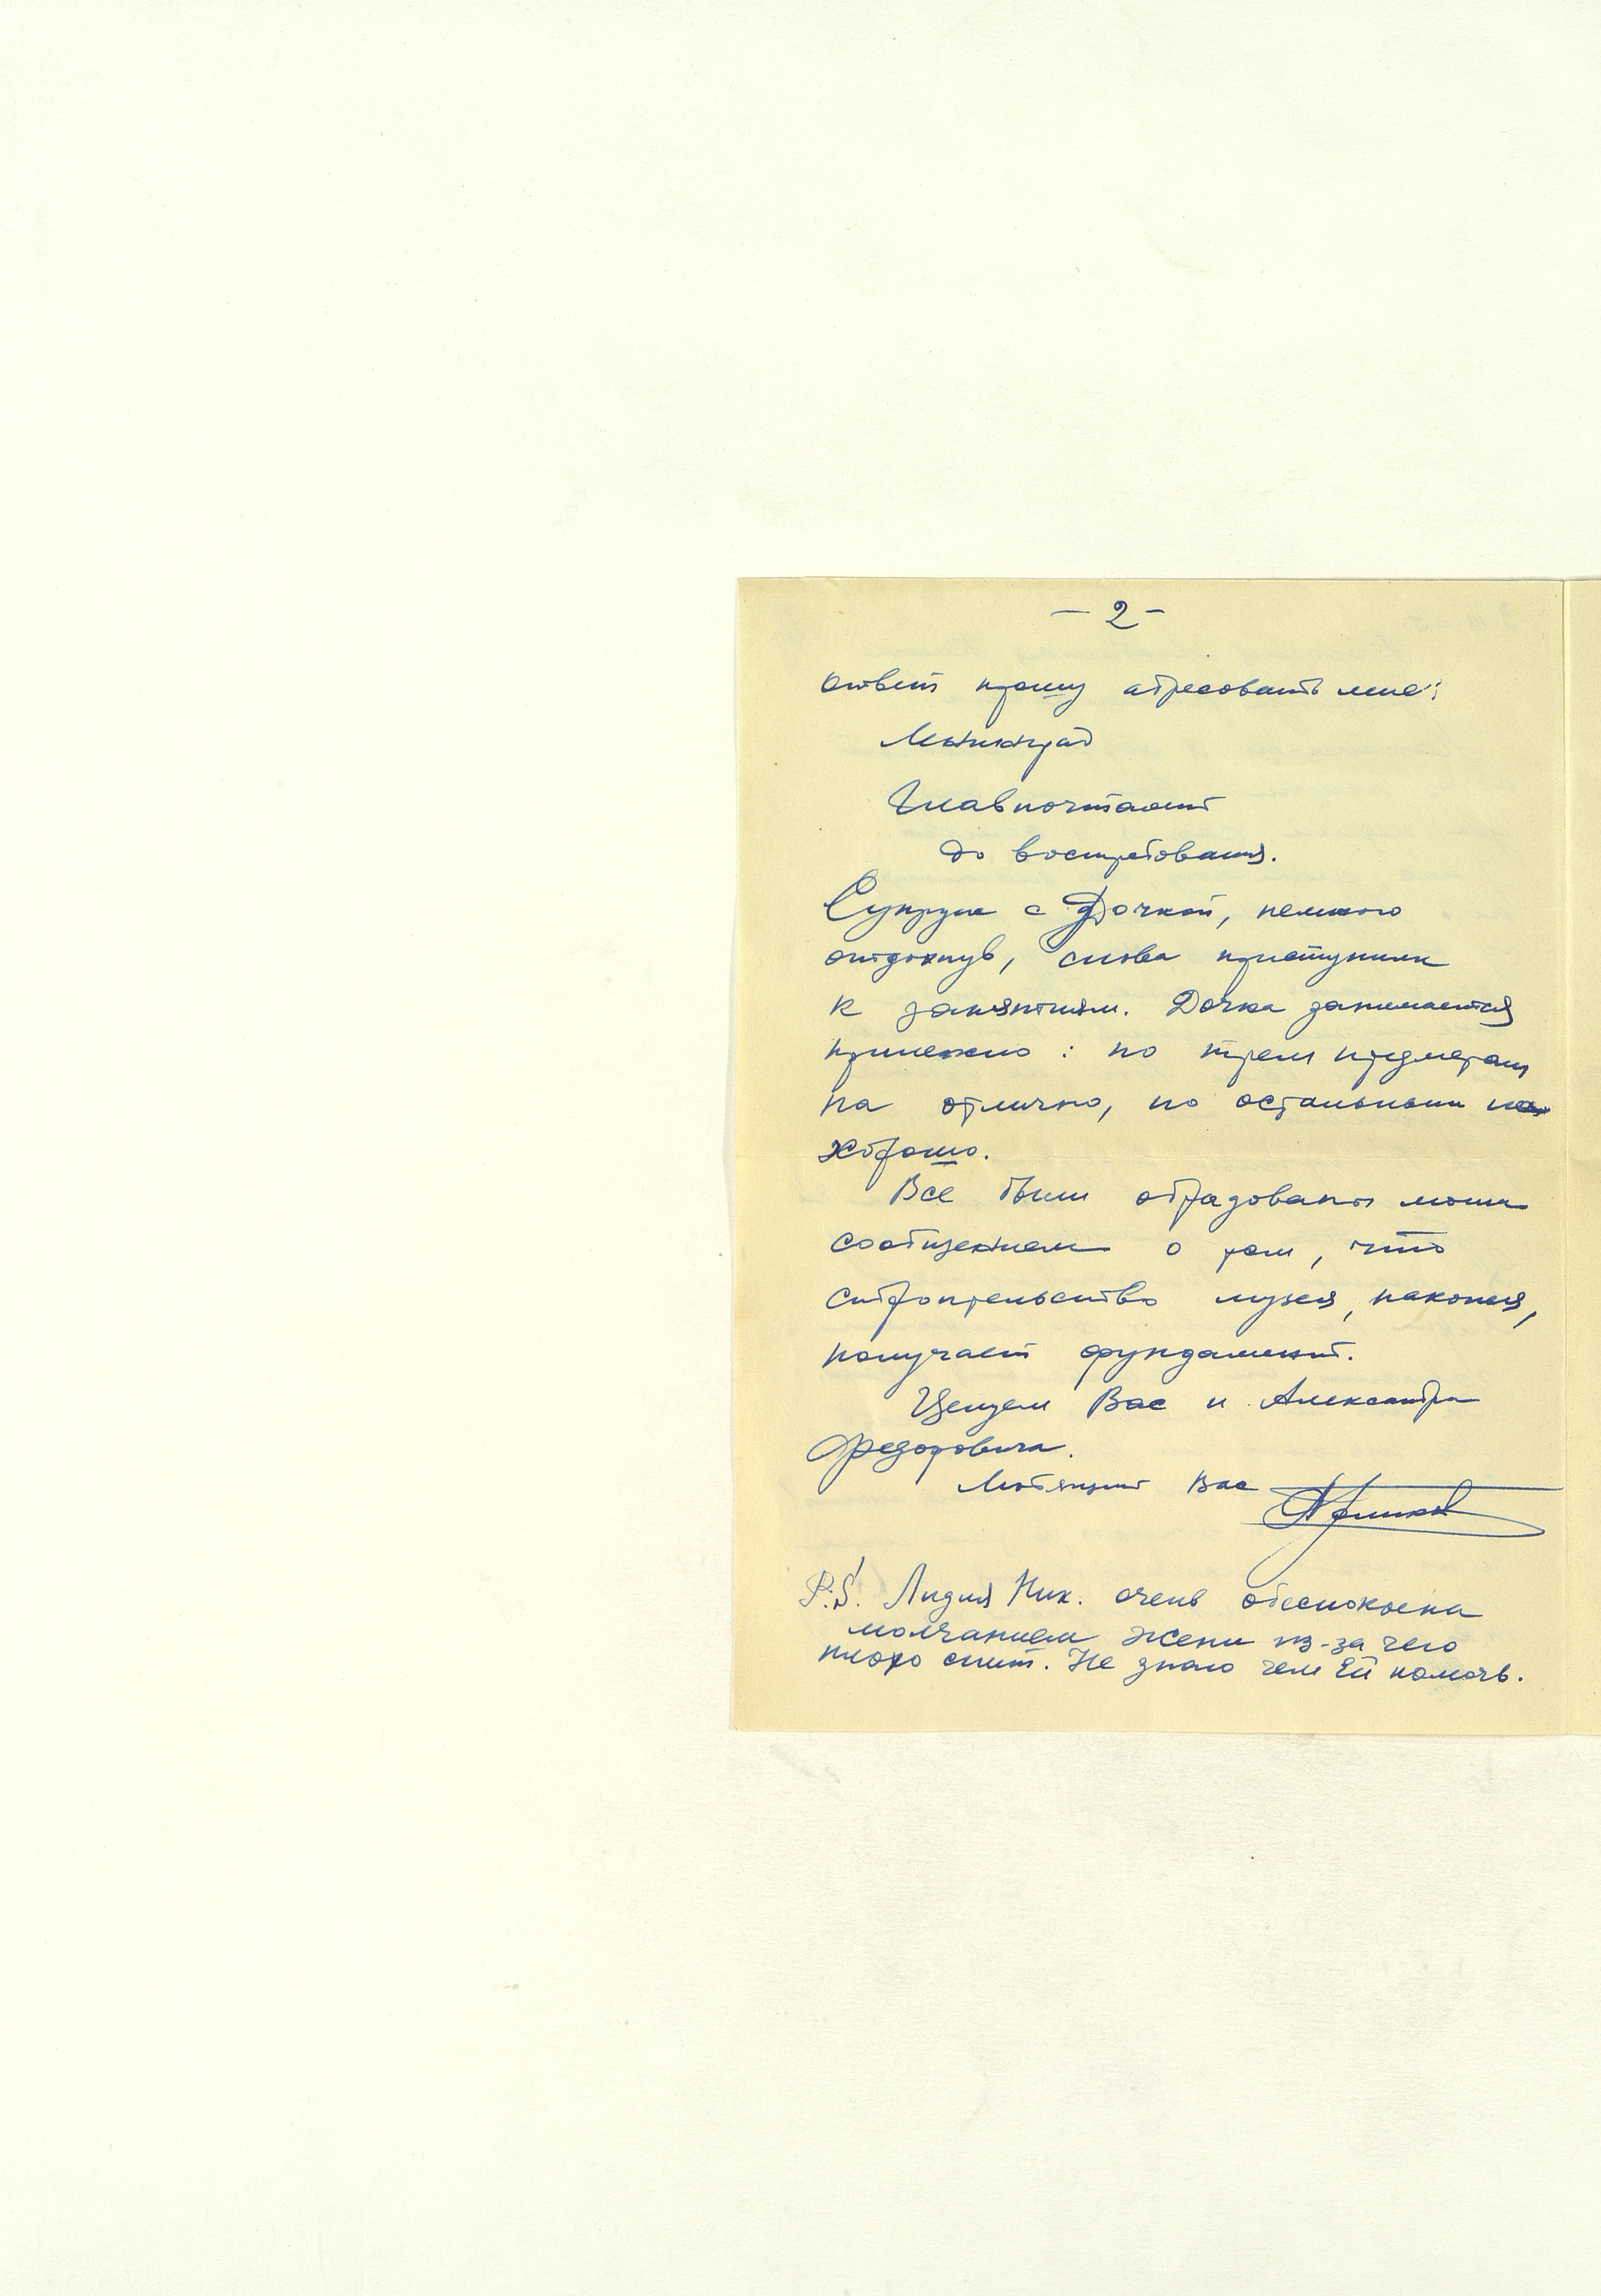 – 2 –
ответ прошу адресовать мне:
Ленинград
Главпочтамт
до востребования.
Супруга с дочкой, немного
отдохнув, снова приступили
к занятиям. Дочка занимается
прилежно: по трем предметам
на отлично, по остальным на
хорошо.
Все были обрадованы моим
сообщением о том, что
строительство музея, наконец,
получает фундамент.
Целуем Вас и Александра
Федоровича.
Любящий Вас
P.S. Лидия Ник. очень обеспокоена
молчанием Жени из-за чего
плохо спит. Не знаю чем Ей помочь.